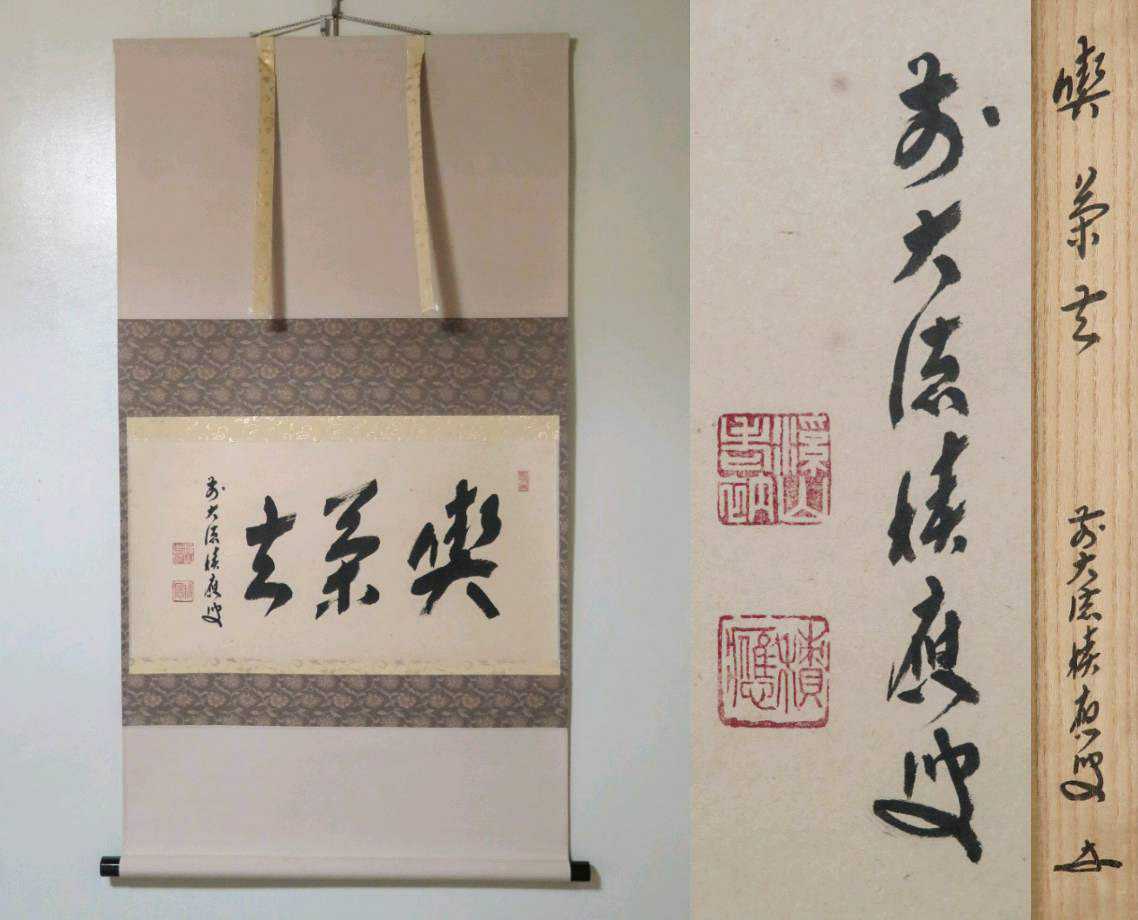 喫茶去
前大徳積應叟
前大徳積應叟
積應
喫茶去
前大徳積應叟